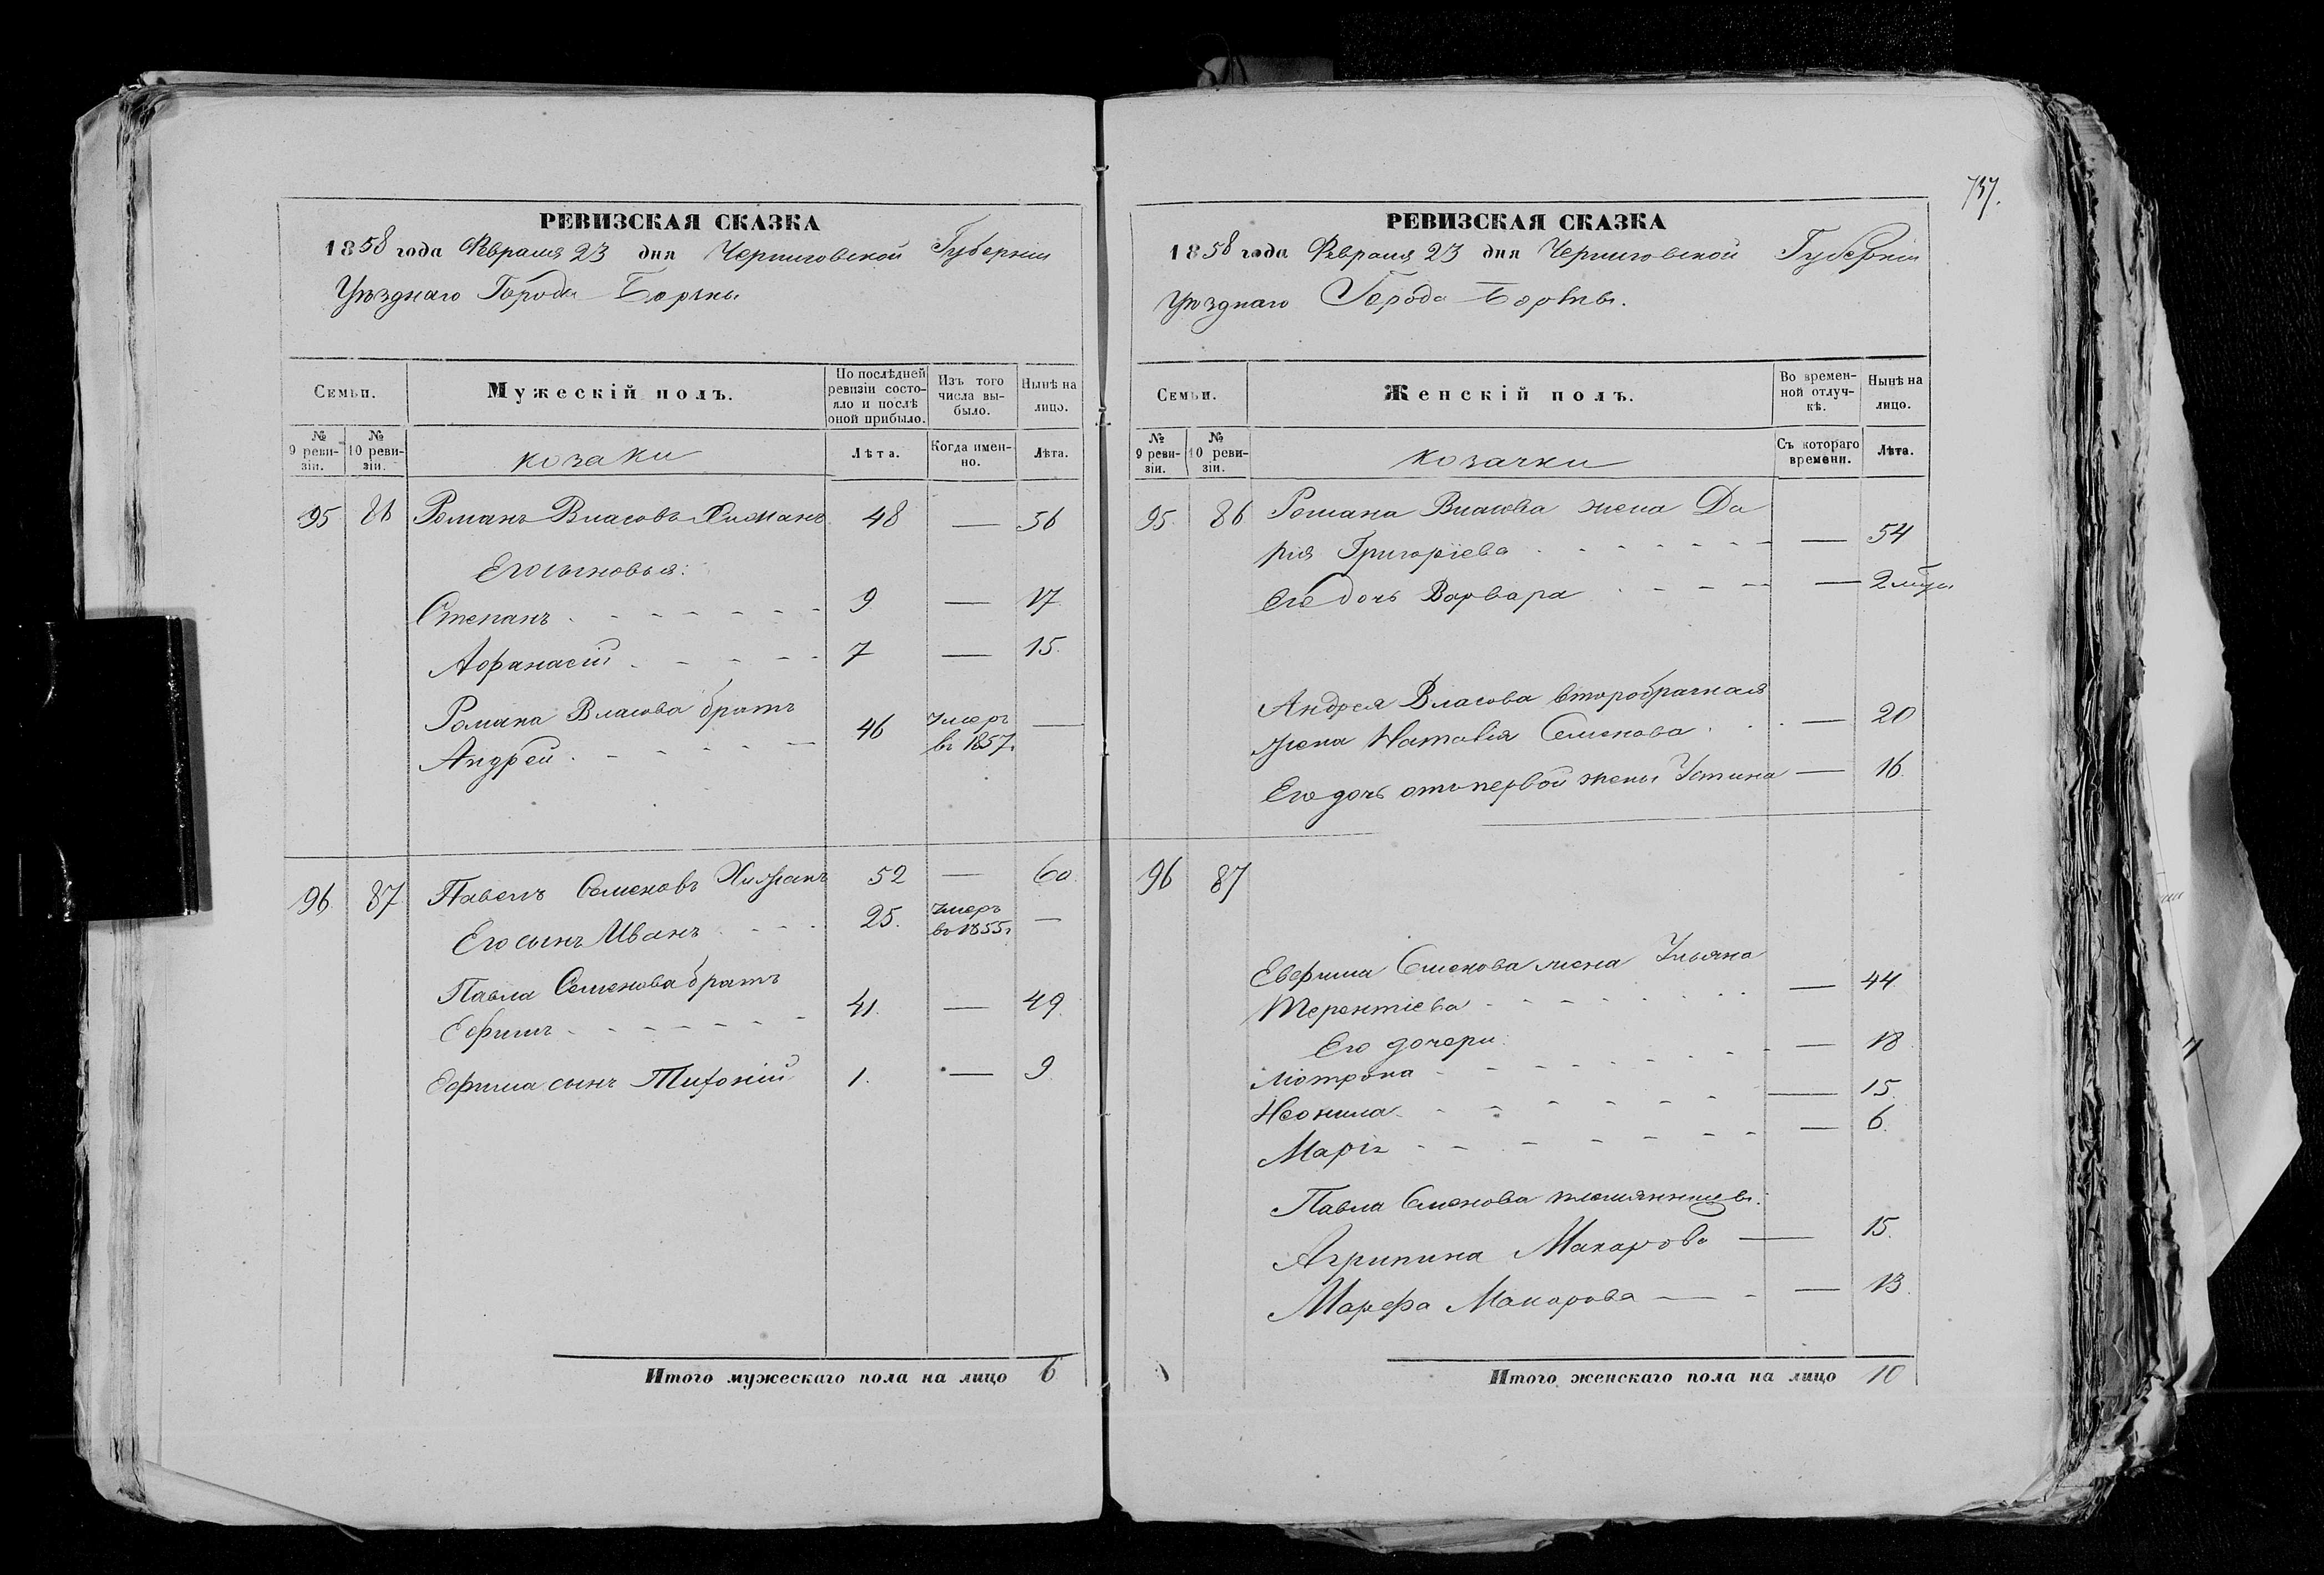 737.
РЕВИЗСКАЯ СКАЗКА
1858 года Февраля 23 дня Черниговской Губерніи
Уѣзднаго Города Борзны
Семьи.
Мужескій полъ.
По послѣдней ревизіи состояло и послѣ оной прибыло.
Изъ того числа выбыло.
Нынѣ на лицо.
№ 9 ревизіи.
№ 10 ревизіи.
козаки
Лѣта.
Когда именно.
Лѣта.
95 86 Романъ Власовъ Хижанъ 48 — 56
Его сыновья:
Степанъ 9 — 17
Афанасій 7 — 15.
Романа Власова братъ
Андрей 46 умеръ въ 1857. —
96 87 Павелъ Семеновъ Хижанъ 52 — 60.
Его сынъ Иванъ 25. умеръ въ 1855г —
Павла Семенова братъ
Ефимъ 41. — 49.
Ефима сынъ Тихоній 1. — 9.
Итого мужескаго пола на лицо 6
РЕВИЗСКАЯ СКАЗКА
1858 года Февраля 23 дня Черниговской Губерніи
Уѣзднаго Города Борзны.
Семьи.
Женскій полъ.
Во временной отлучкѣ.
Нынѣ на лицо.
№ 9 ревизіи.
№ 10 ревизіи.
козачки
Съ котораго времени.
Лѣта.
95. 86 Романа Власова жена Да
рія Григоріева — 54
Его дочь Варвара — 2
Андрея Власова второбрачная
жена Наталія Семенова — 20
Его дочь отъ первой жены Устина — 16.
96 87
Ефима Семенова жена Ульяна
Терентіева — 44
Его дочери:
Мотрона — 18
Неонила — 15.
Марія — 6.
Павла Семенова племянницы:
Агрипина Макарова — 15.
Марфа Макарова — 13.
Итого женскаго пола на лицо 10